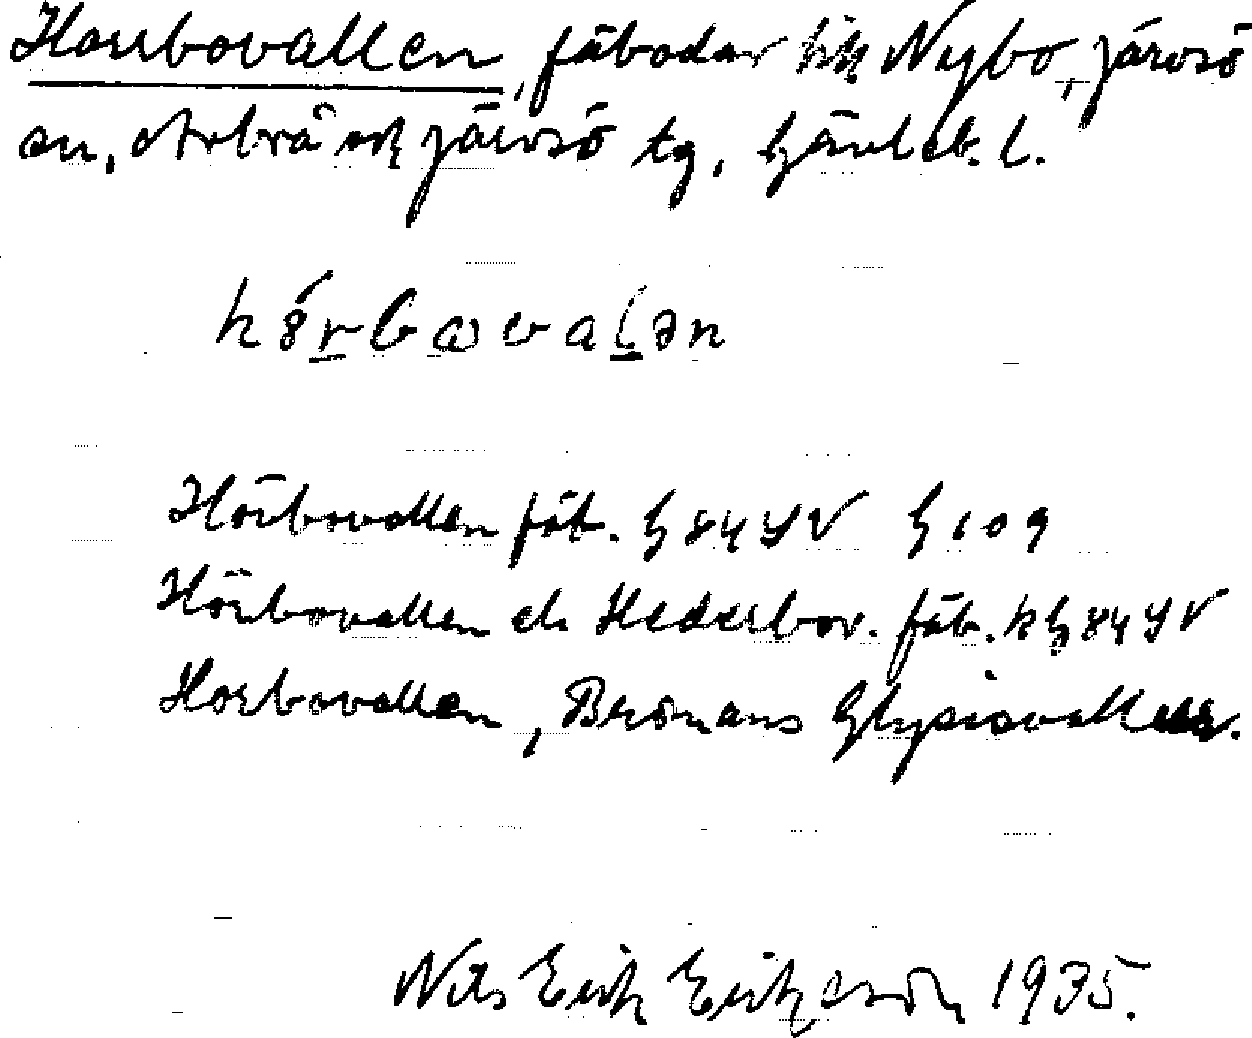 Horrbovallen, fäbodar till Nybo, Järvsö
sn, Arbrå och Järvsö tg, Gävleb. l.
Hörbovallen fäb. G 84 SV G 109
Hörbovallen el. Hederbov. fäb. k G 84 SV
Horbovallen, Bromans Glysisvallur.
Nils Erik Eriksson 1935.